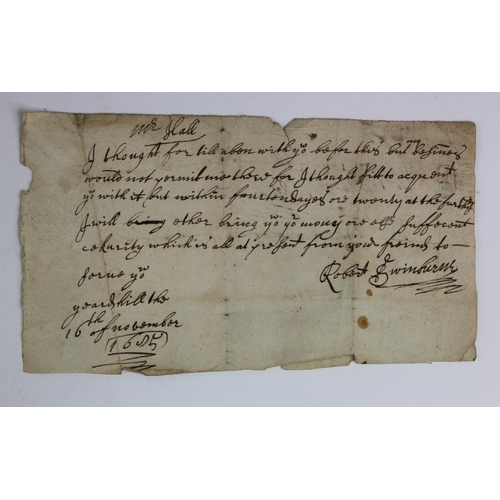 mr Hall
I thought for till abon with yo befor this but my besines
would not permit me there for I thought fitt to acquent
yo with it but within fourtendayes ore twenty at the furthest
I will being ether bring yo yr mony ore els sufficent
cekurity which is all at present from your freind to
serve yo
Robert Swinburne
yeardhill the
16th of november
1685